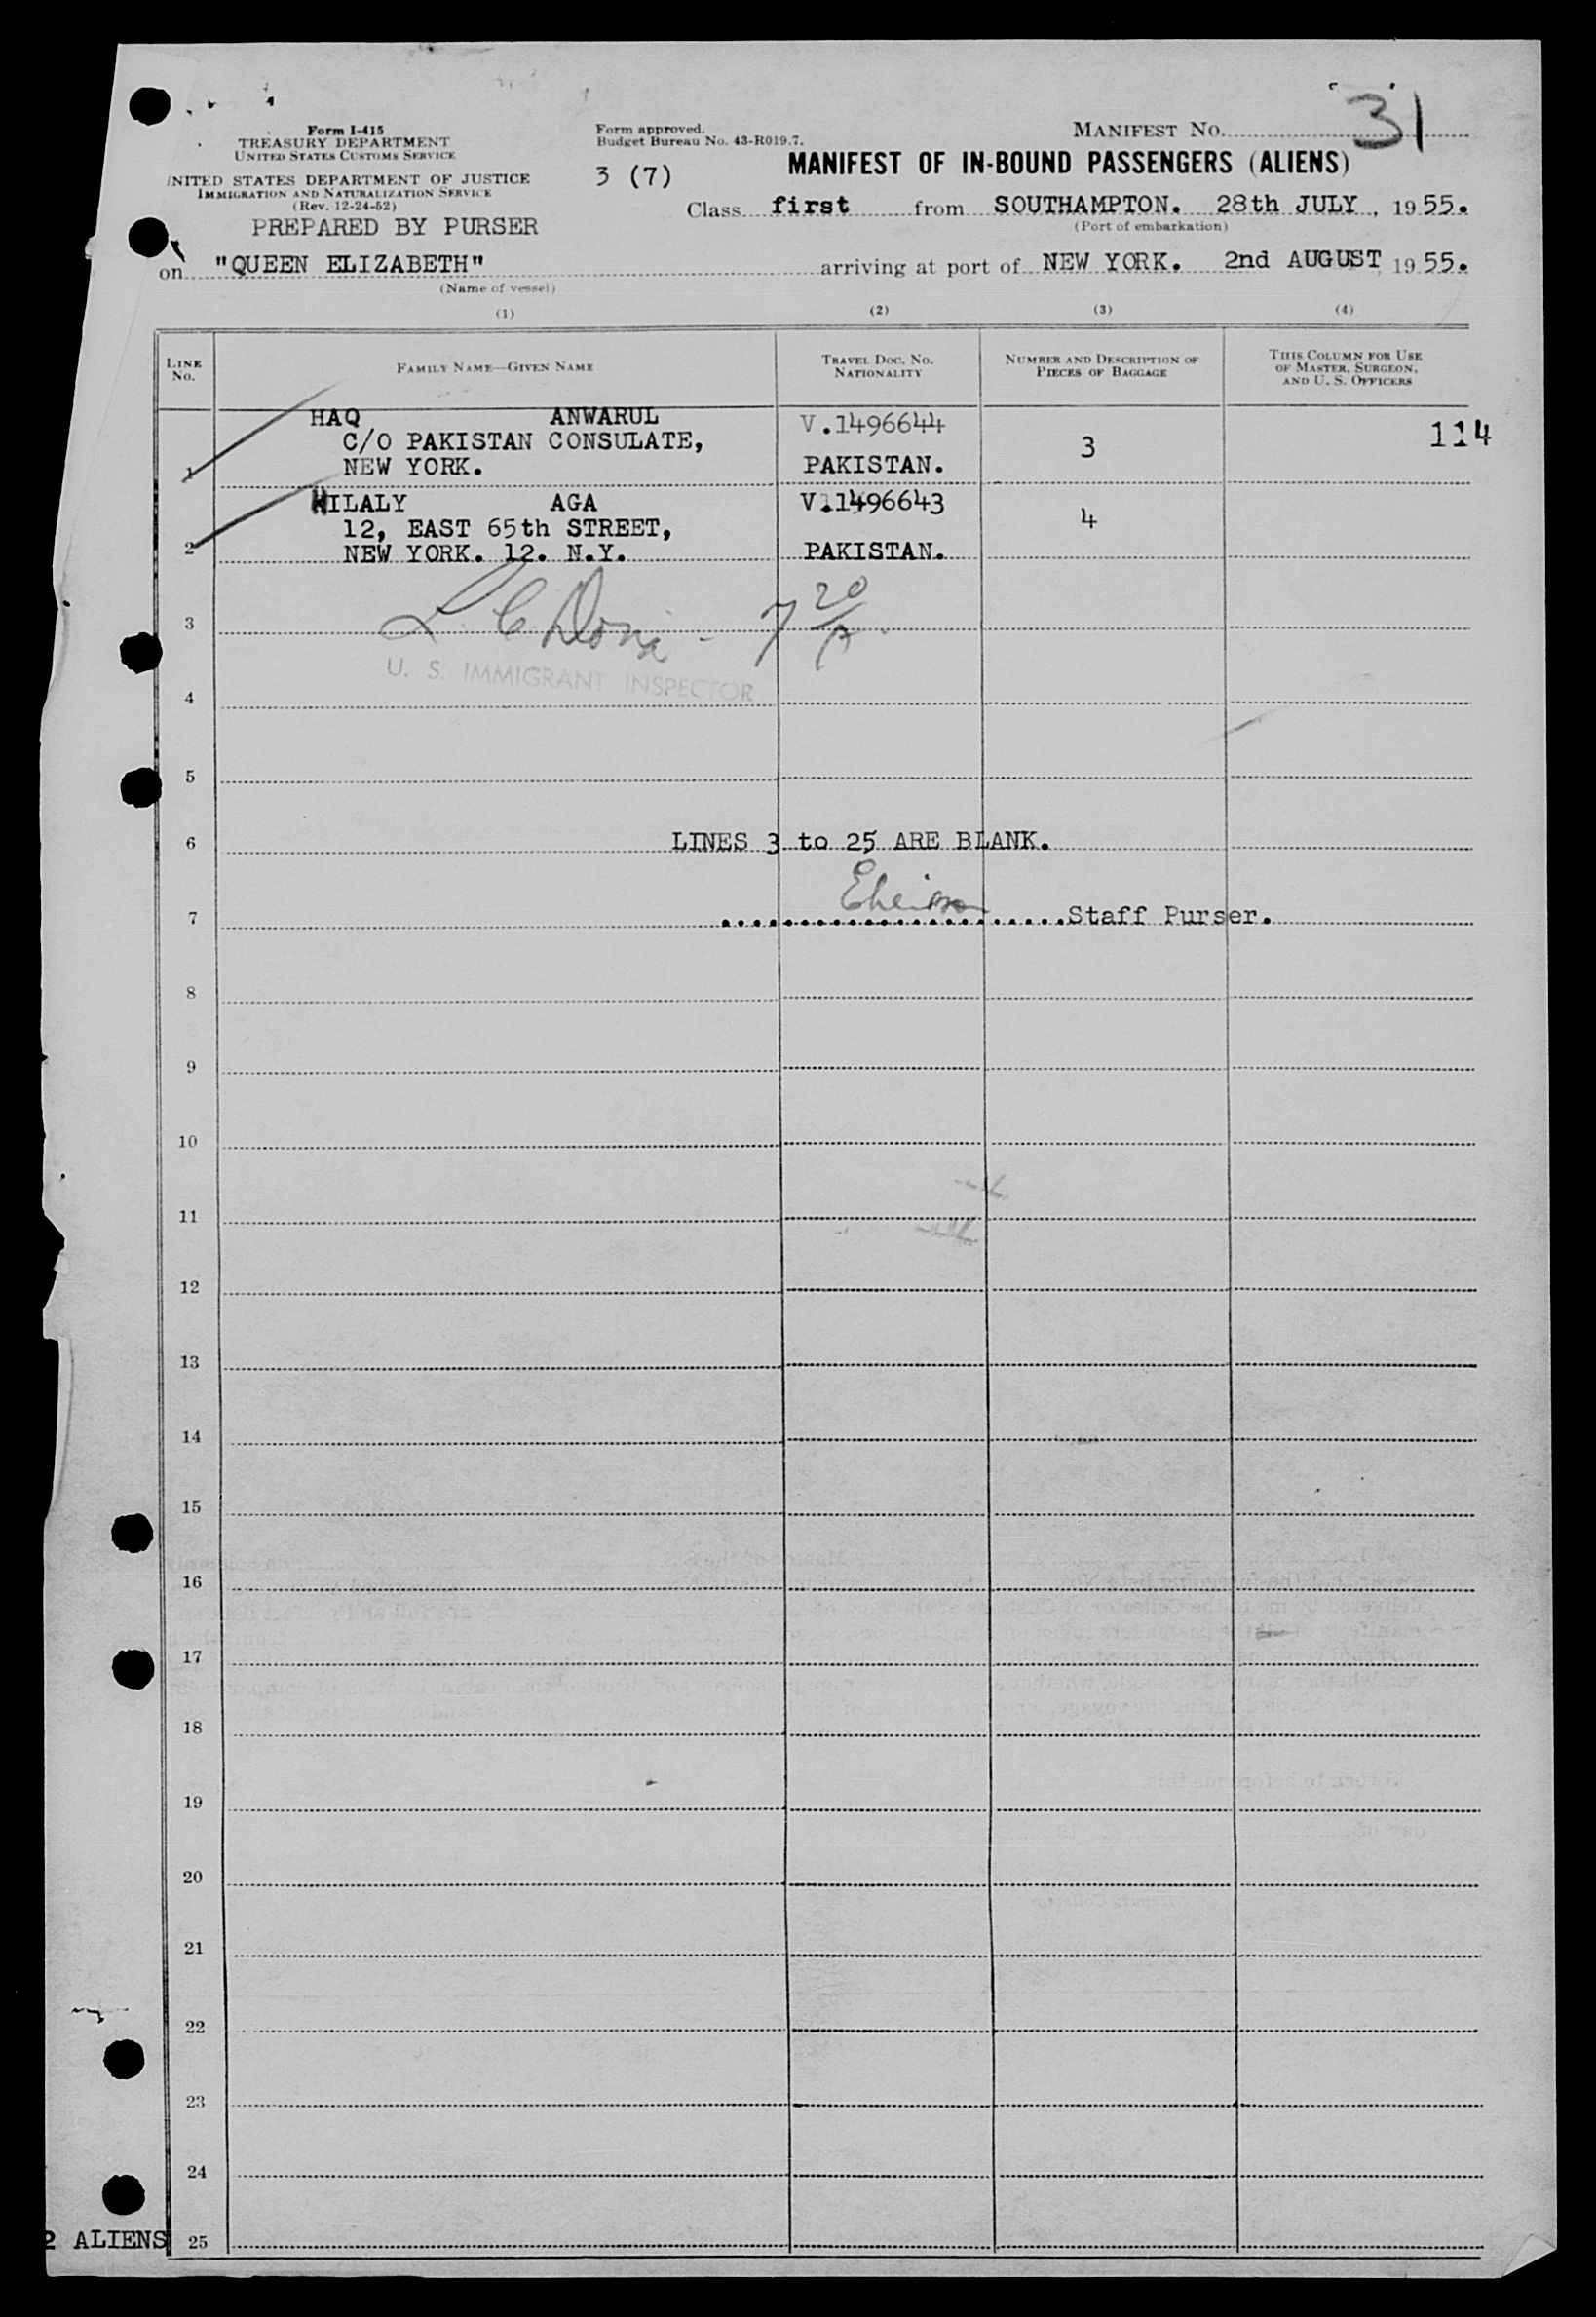 Form I-415
TREASURY DEPARTMENT
UNITED STATES CUSTOMS SERVICE
UNITED STATES DEPARTMENT OF JUSTICE
IMMIGRATION AND NATURALIZATION SERVICE
(Rev. 12-24-52)
PREPARED BY PURSER
Form approved.
Budget Bureau No. 43-R019.7.
3 (7)
MANIFEST NO. 31
MANIFEST OF IN-BOUND PASSENGERS (ALIENS)
Class first from SOUTHAMPTON. 28th JULY, 1955.
(Port of embarkation)
on "QUEEN ELIZABETH" arriving at port of NEW YORK. 2nd AUGUST, 1955.
(Name of vessel)
(1) (2) (3) (4)
LINE No. FAMILY NAME—GIVEN NAME TRAVEL DOC. NO. NATIONALITY NUMBER AND DESCRIPTION OF PIECES OF BAGGAGE THIS COLUMN FOR USE OF MASTER, SURGEON, AND U. S. OFFICERS
HAQ ANWARUL V.1496644 114
C/O PAKISTAN CONSULATE, 3
1 NEW YORK. PAKISTAN.
HILALY AGA V.1496643
12, EAST 65th STREET, 4
2 NEW YORK. 12. N.Y. PAKISTAN.
3 L. C. 7 20
U. S. IMMIGRANT INSPECTOR
4
5
6 LINES 3 to 25 ARE BLANK.
7 Staff Purser.
8
9
10
11
12
13
14
15
16
17
18
19
20
21
22
23
24
2 ALIENS 25